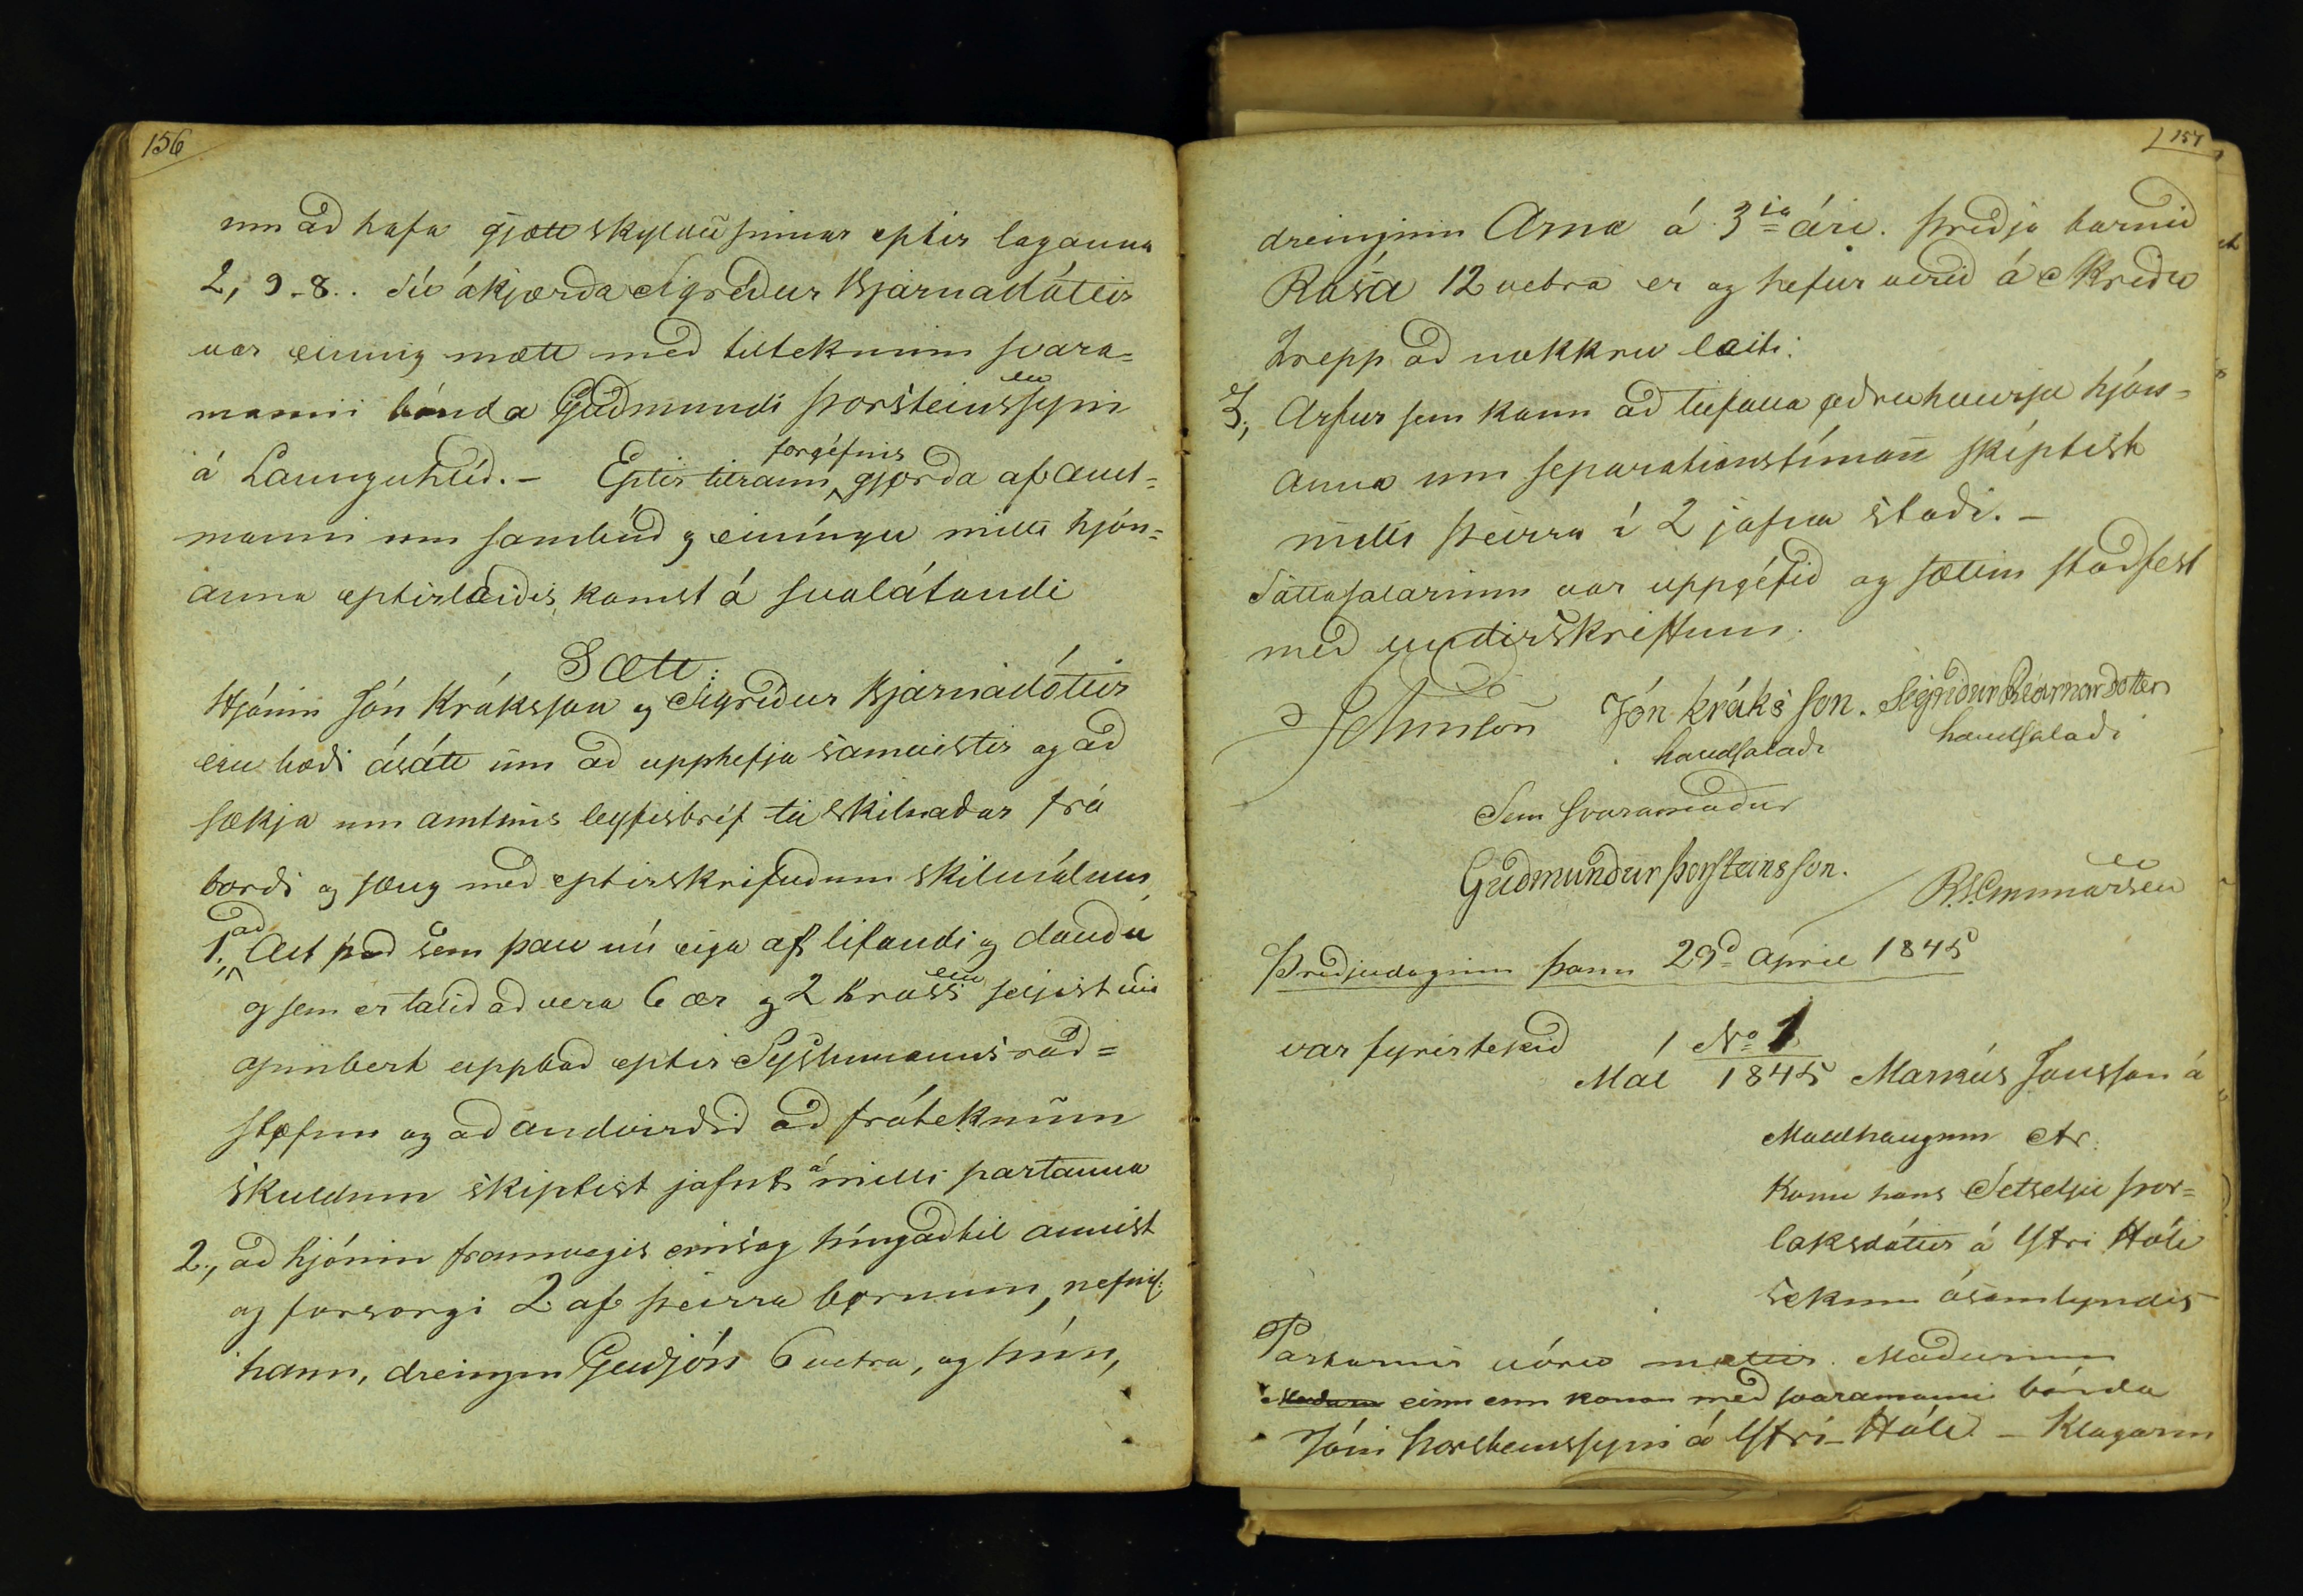 156
um að hafa gjætt skyldu sinnar eptir laganna
2, 9-8.. Sú ákjærða Sigríður Bjarnadóttir
var einnig mætt með tilteknum svara-
manni bónda Guðmundi Þorsteinssyni
á Launguhlíð. - Eptir tilraun forgéfins gjørða af amt-
manni um sambúð og einíngu milli hjón-
anna eptirleiðis, komst á svolátandi
Sætt:
Hjónin Jón Kráksson og Sigríður Bjarnadóttir
eru bæði ásátt um að upphefja samvistir og að
sækja um amtsins leyfisbréf til skilnaðar frá
borði og sæng með eptirskrifuðum skilmálum,
1., að Alt það sem þau nú eiga af lifandi og dauðu
og sem er talið að vera 6 ær og 2 hross seljist við
opinbert uppboð eptir Syslumanns ráð-
støfun og að andvirðið að fráteknum
skuldum skiptist jafnt á milli partanna
2., að hjónin framvegis einsog híngaðtil annist
og forsorgi 2 af þeirra børnum, nefnil:
hann, dreinginn Guðjón 6 vetra, og hún,
157
dreinginn Arna á 3ia ári. Þriðja barnið
Rósa 12 vetra er og hefur verið á Skriðu
hrepp að nokkru leiti.
3., Arfur sem kann að tilfalla øðruhvørju hjón-
anna um separationstímann skiptist
milli þeirra í 2 jafna staði. -
Sáttasalarinn var uppgéfið og sættin staðfest
með undirskriftum.
Jón Kráks son. Sigríður Biarnar dotter
handsalaði handsalaði
Sem svaramaður
Guðmundur Þorsteins son.
Þriðjudaginn þann 29d April 1845
var fyrirtekið 1 No 1
Mál 1845 Markús Jonsson á
Moldhaugum ctr.
Konu hans Setselju Þor-
laksdóttir á Ytri Hóli
sökum ósamlyndis
Partarnir vóru mættir. Maðurinn
einn enn konan með svaramanni bónda
Jóni Þorsteinssyni á Ytri-Hóli - Klagarinn